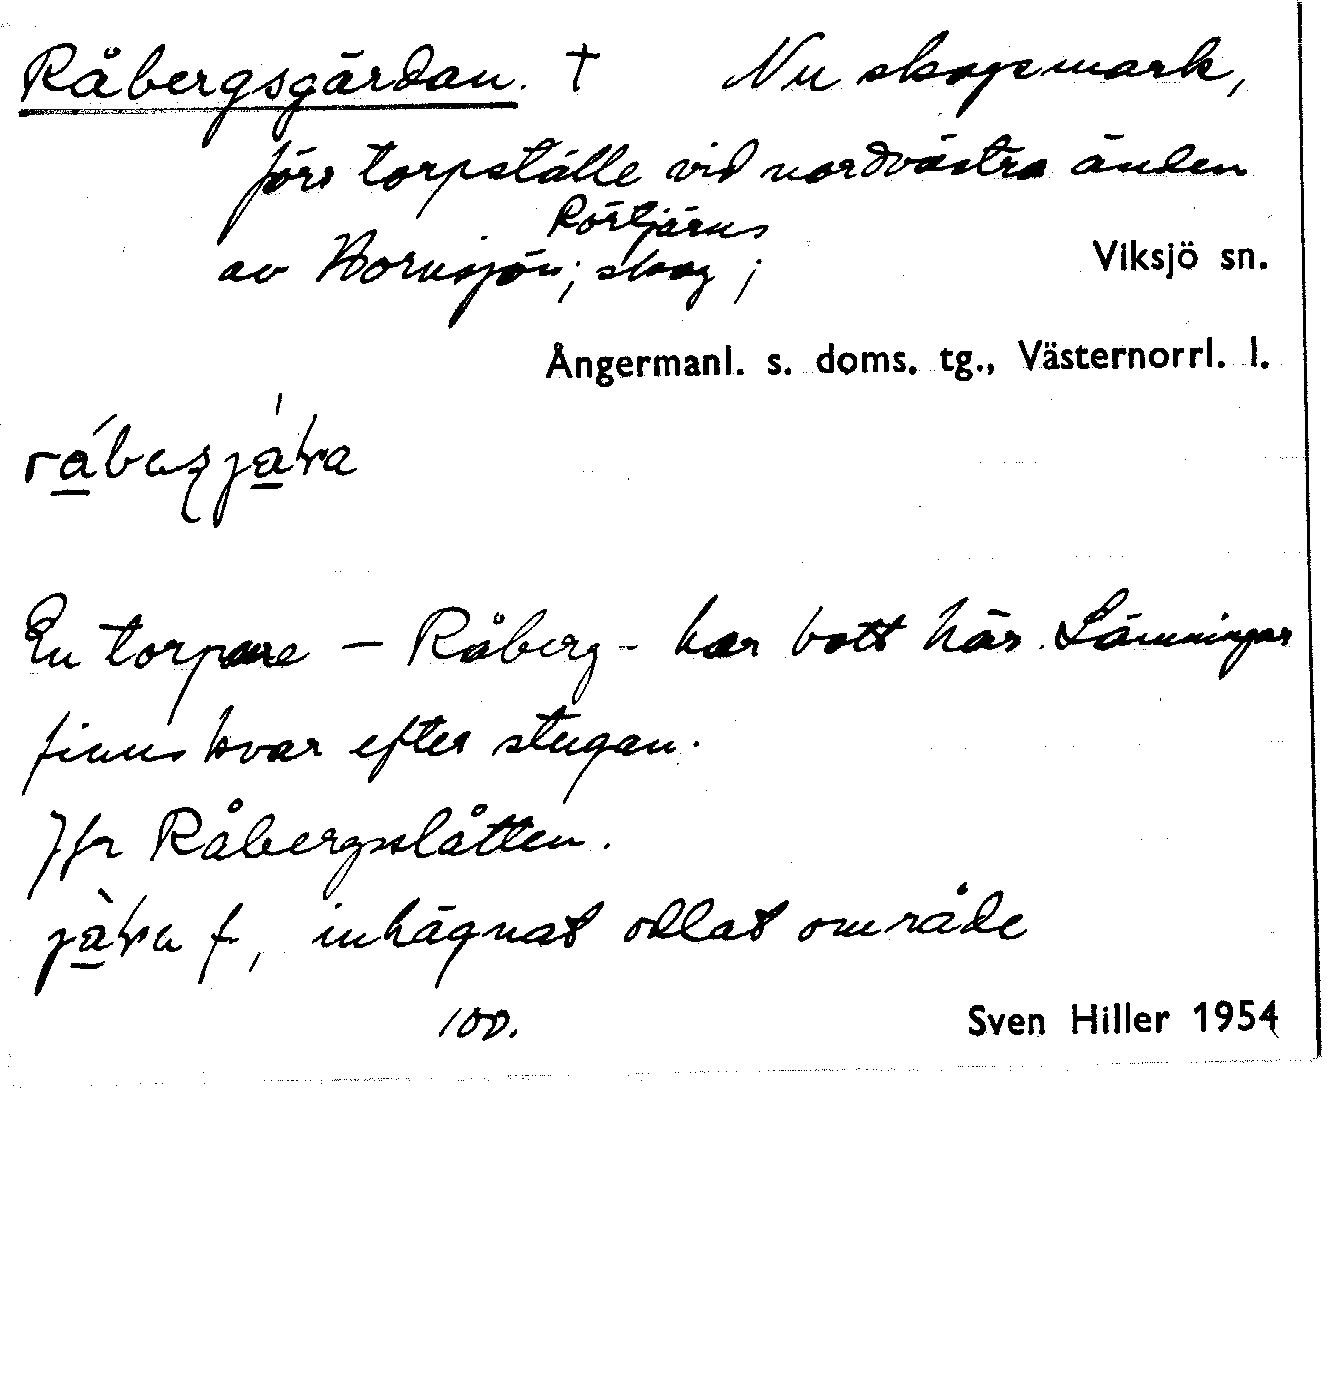 Råbergsgärdan. † Nu skogsmark,
förr torpställe vid nordvästra änden
Rörtjärns
av Hornsjön; skog; Viksjö sn.
Ångermanl. s. doms. tg., Västernorrl. l.
En torpare – Råberg – har bott här. Lämningar
finns kvar efter stugan.
Jfr Råbergsslåtten.
f, inhägnat odlat område
100. Sven Hiller 1954